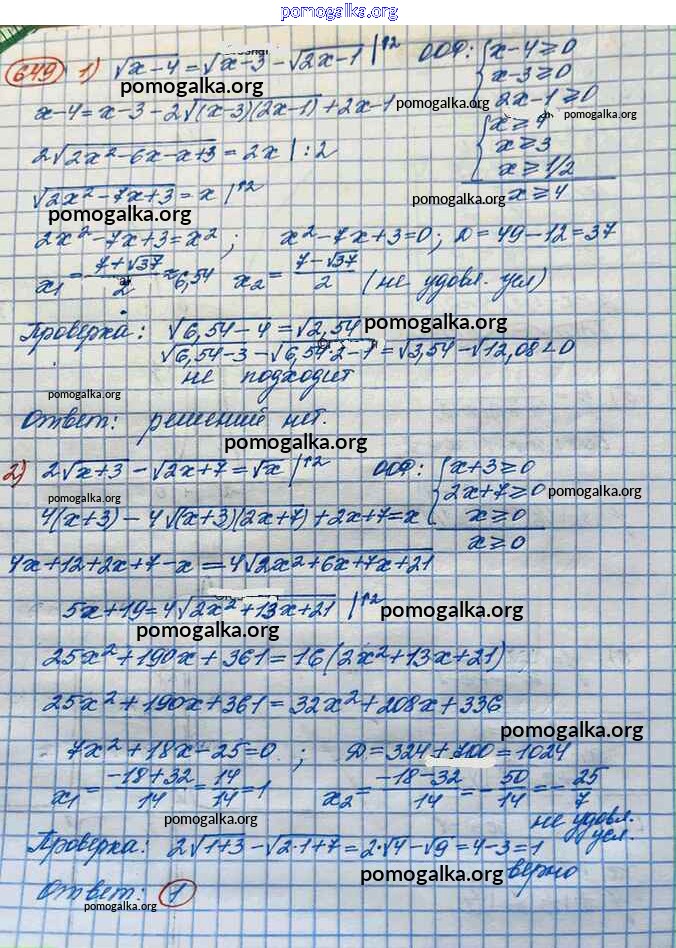 pomogalka.org
649 1) √x-4 = √x-3 - √2x-1 |↑2 ООФ: { x-4≥0
x-3≥0
pomogalka.org
2x-1≥0
x-4 = x-3 - 2√(x-3)(2x-1) + 2x-1
pomogalka.org
pomogalka.org
{ x≥4
2√2x²-6x-x+3 = 2x |:2 x≥3
x≥1/2
√2x²-7x+3 = x |↑2 pomogalka.org x≥4
pomogalka.org
2x²-7x+3 = x² ; x²-7x+3=0; D=49-12=37
x₁ = 7+√37/2 ≈ 6,54 x₂ = 7-√37/2 (не удовл. усл)
Проверка: √6,54-4 = √2,54 pomogalka.org
√6,54-3 - √6,54·2-1 = √3,54 - √12,08 < 0
не подходит
pomogalka.org
Ответ: решений нет.
pomogalka.org
2) 2√x+3 - √2x+7 = √x |↑2 ООФ: { x+3≥0
2x+7≥0 pomogalka.org
pomogalka.org
4(x+3) - 4√(x+3)(2x+7) + 2x+7 = x x≥0
x≥0
4x+12+2x+7-x = 4√2x²+6x+7x+21
5x+19 = 4√2x²+13x+21 |↑2 pomogalka.org
pomogalka.org
25x²+190x+361 = 16(2x²+13x+21)
25x²+190x+361 = 32x²+208x+336
pomogalka.org
7x²+18x-25=0 ; D=324+700=1024
x₁ = -18+32/14 = 14/14 = 1 x₂ = -18-32/14 = -50/14 = -25/7
pomogalka.org не удовл. усл.
Проверка: 2√1+3 - √2·1+7 = 2·√4 - √9 = 4-3 = 1
pomogalka.org верно
Ответ: 1
pomogalka.org